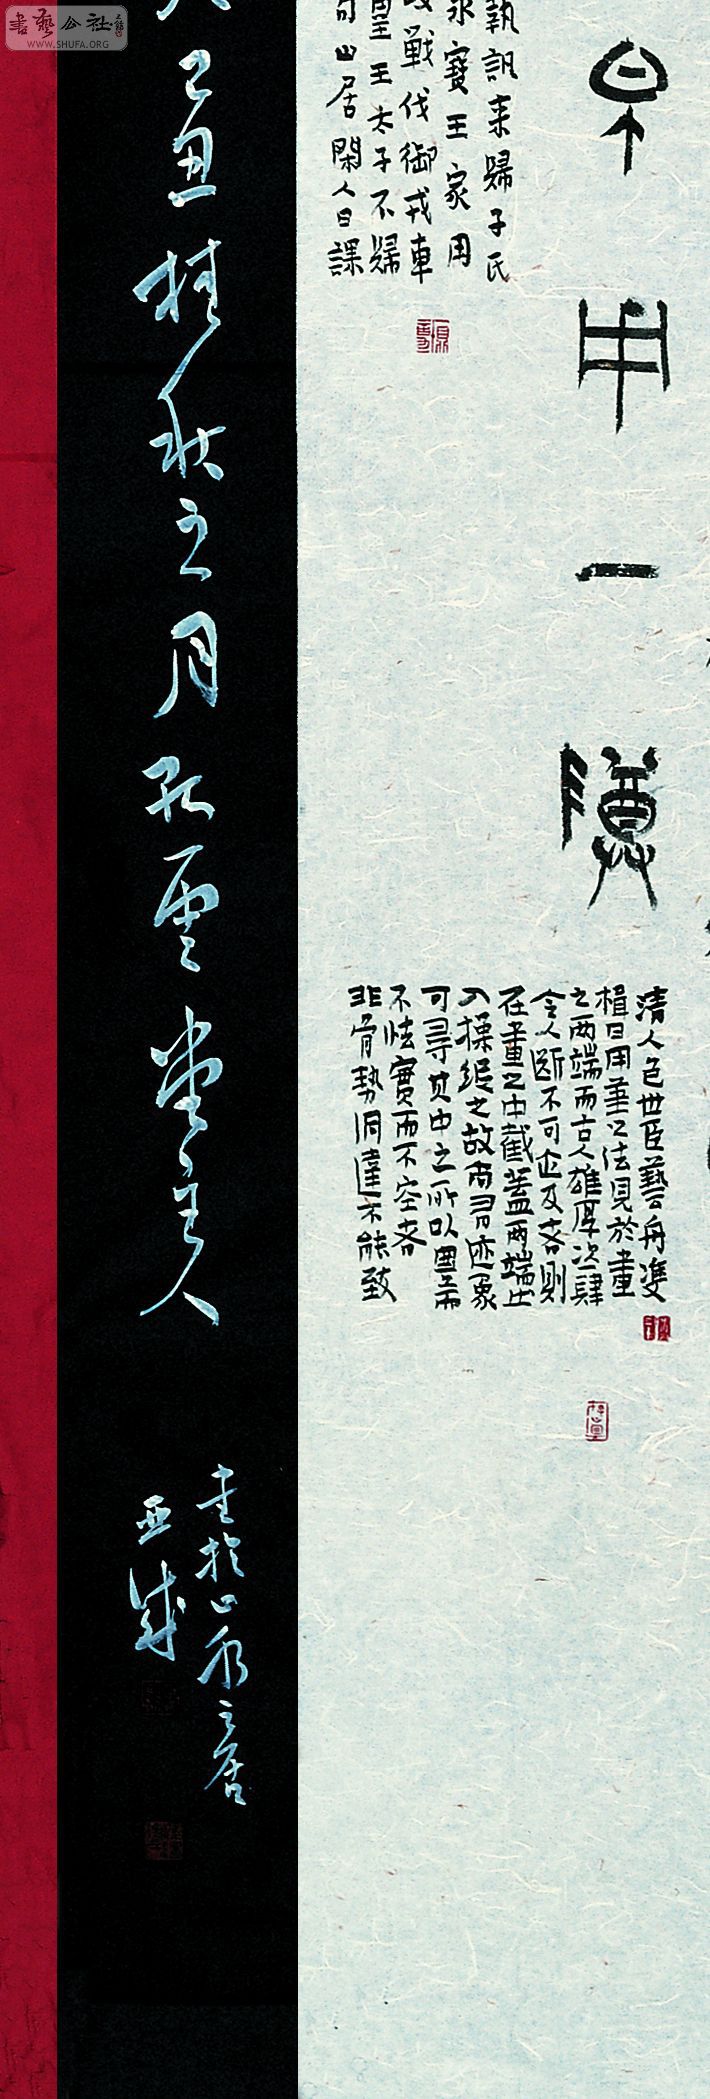 書藝公社
WWW.SHUFA.ORG
甲一
執訊來歸子氏
永寶王家用
戰伐御戎車
王太子不歸
山居閑人日課
清人包世臣藝舟雙
楫曰用筆之法見於畫
之兩端而古人雄厚恣肆
令人斷不可企及者則
在畫之中截蓋兩端出
入操縱之故尚有迹象
可尋其中之所以圓而
不怯實而不空者
非骨勢洞達不能致
己丑桂秋之月
雲堂主人
書於山水之居
亚